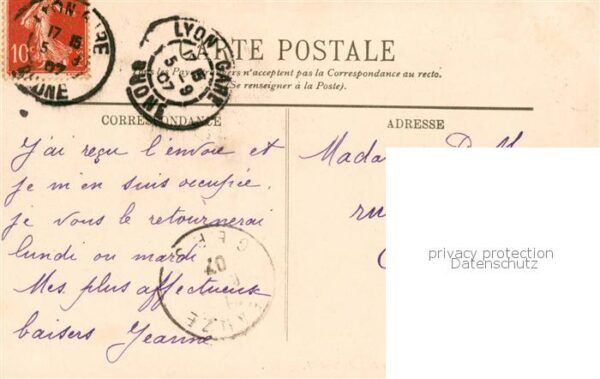 10c
LYON GARE
17 15
5 - 9
07
RHONE
LYON-GARE
17 15
5 9
07
RHONE
CARTE POSTALE
Pays n'acceptent pas la Correspondance au recto.
(Se renseigner à la Poste).
CORRESPONDANCE
ADRESSE
J'ai reçu l'envoie et
je m'en suis occupée,
je vous le retournerai
lundi ou mardi
Mes plus affectueux
baisers Jeanne
Mada
ru
07
privacy protection
Datenschutz